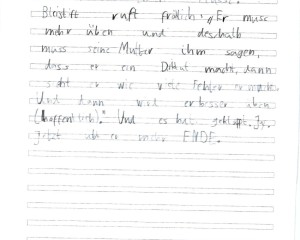 Bleistift ruft frölich: „Er muss
mehr üben und deshalb
muss seine Mutter ihm sagen,
dass er ein Diktat macht, dann
sieht er wie viele Fehler er macht.
Und dann wird er besser üben
(hoffentlich)." Und es hat geklappt. Ja,
jetzt übt er mehr ENDE.